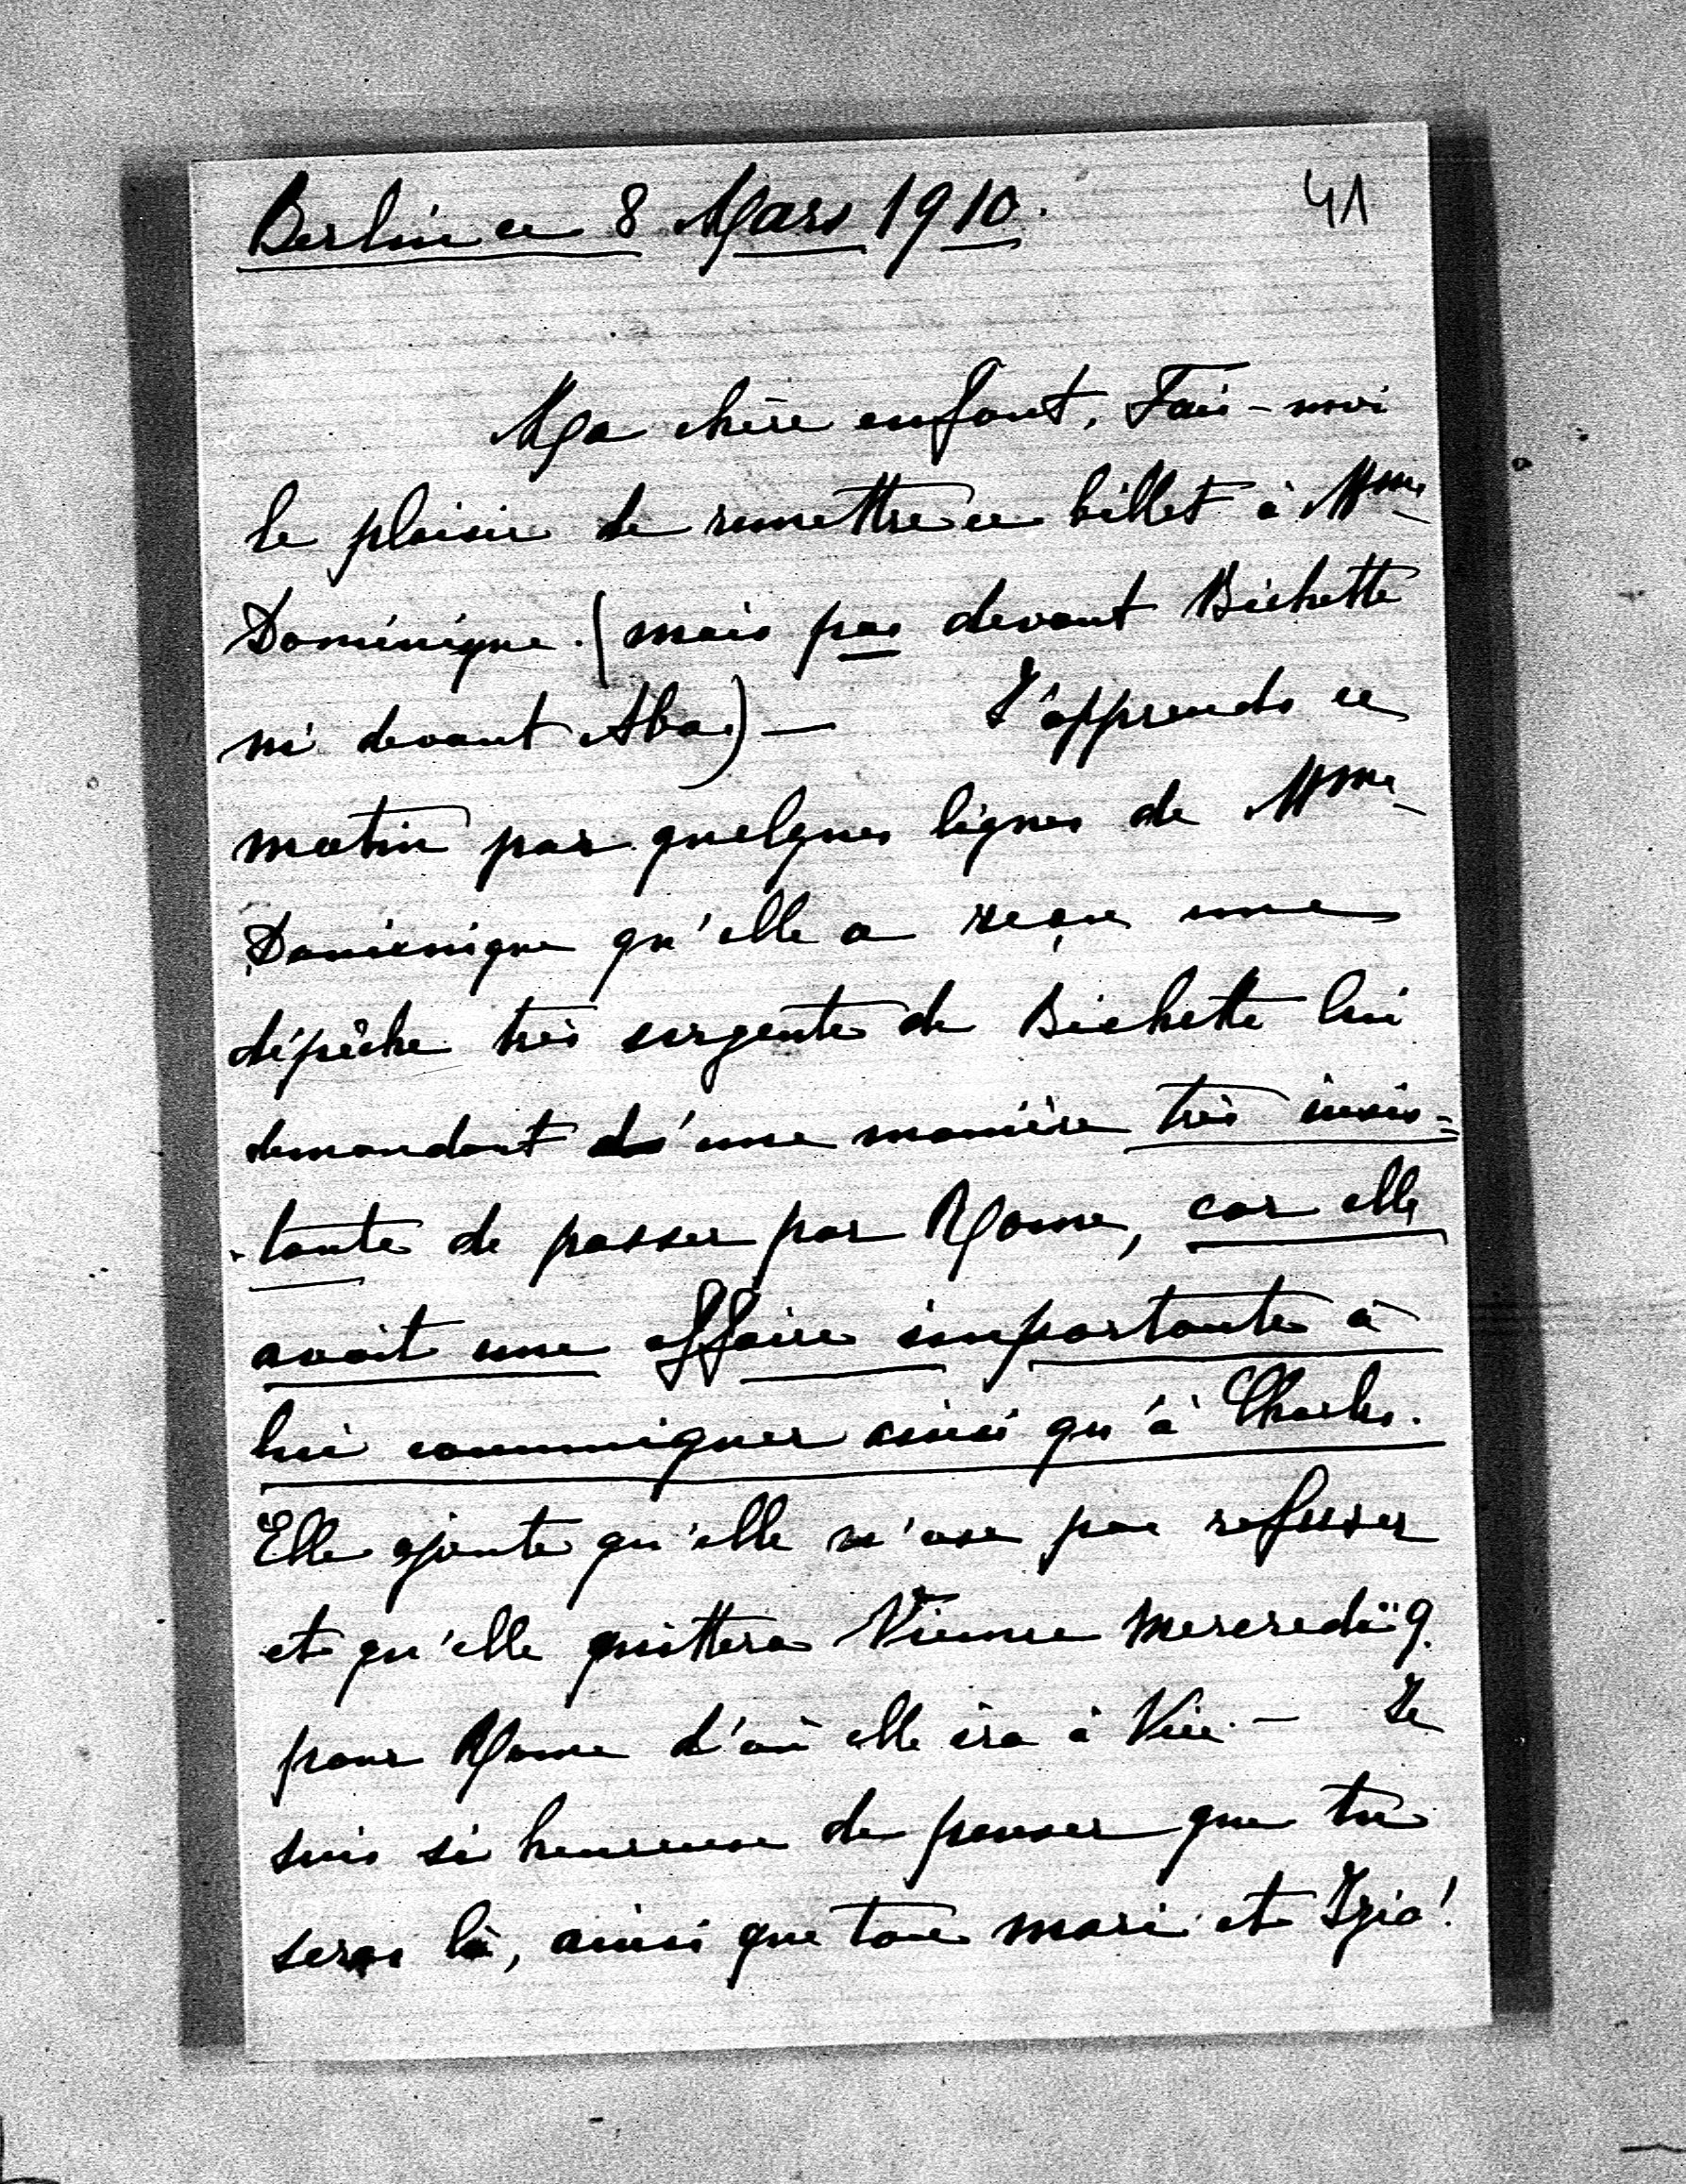 Berlin ce 8 Mars 1910.
41
Ma chère enfant, Fais-moi
le plaisir de remettre ce billet à Mme
Dominique. (mais pas devant Bichette
ni devant Aba.) — J'apprends ce
matin par quelques lignes de Mme
Dominique qu'elle a reçu une
dépêche très urgente de Bichette lui
demandant d'une manière très insis=
-tante de passer par Rome, car elle
avait une affaire importante à
lui communiquer ainsi qu'à Charles.
Elle ajoute qu'elle n'ose pas refuser
et qu'elle quittera Vienne Mercredi 9.
pour Rome d'où elle ira à
— Je
suis si heureuse de penser que tu
seras là, ainsi que ton mari et Izia!